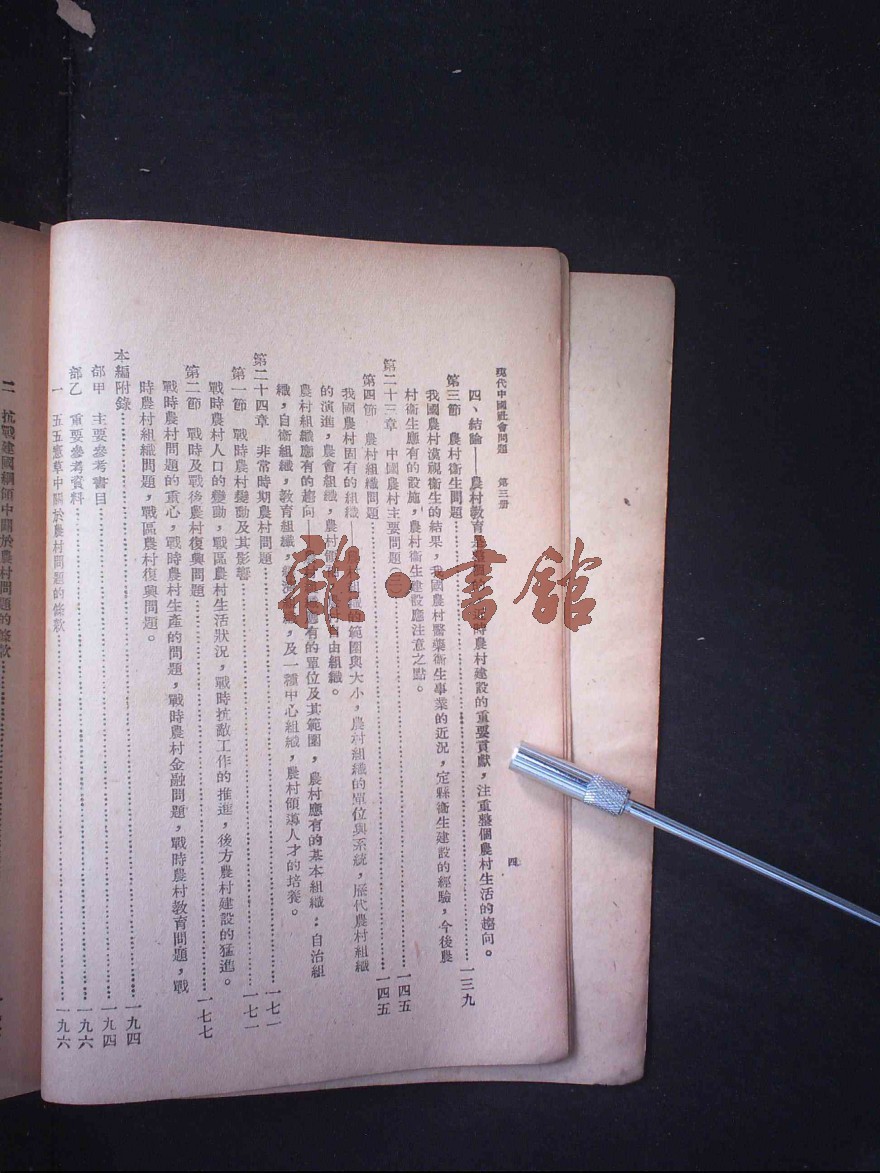 現代中國社會問題　第三册
四
四、結論——農村教育　農村建設的重要貢獻，注重整個農村生活的趨向。
第三節　農村衞生問題……一三九
我國農村漠視衞生的結果，我國農村醫藥衞生事業的近況，定縣衞生建設的經驗，今後農
村衞生應有的設施，農村衞生建設應注意之點。
第二十三章　中國農村主要問題……一四五
第四節　農村組織問題……一四五
我國農村固有的組織——　的範圍與大小，農村組織的單位與系統，歷代農村組織
的演進，農會組織，農村　自由組織。
農村組織應有的趨向——　應有的單位及其範圍，農村應有的基本組織：自治組
織，自衞組織，教育組織，　及一種中心組織，農村領導人才的培養。
第二十四章　非常時期農村問題……一七一
第一節　戰時農村變動及其影響……一七一
戰時農村人口的變動，戰區農村生活狀況，戰時抗敵工作的推進，後方農村建設的猛進。
第二節　戰時及戰後農村復興問題……一七七
戰時農村問題的重心，戰時農村生產的問題，戰時農村金融問題，戰時農村教育問題，戰
時農村組織問題，戰區農村復興問題。
本編附錄……一九四
部甲　主要參考書目……一九四
部乙　重要參考資料……一九六
一　五五憲草中關於農村問題的條款……一九六
二　抗戰建國綱領中關於農村問題的條款……
雜·書館